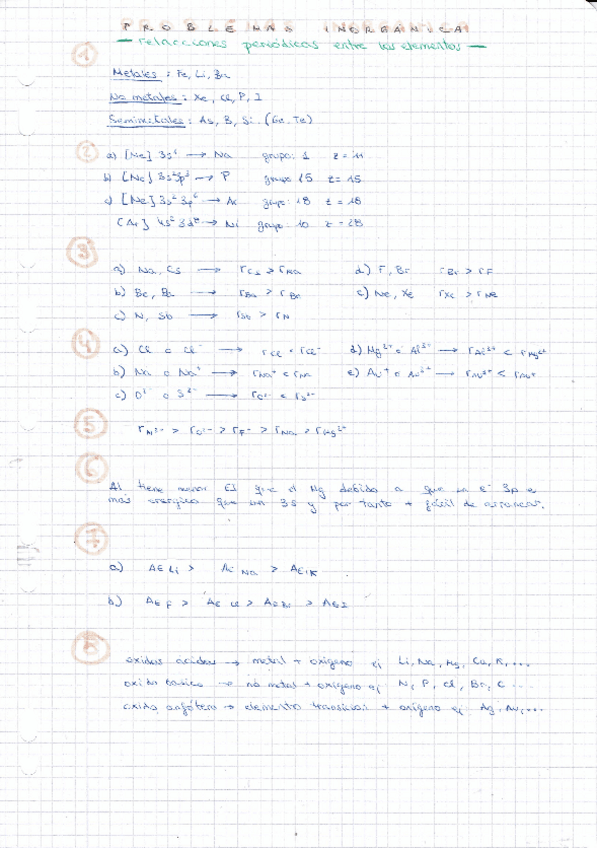 PROBLEMAS INORGÁNICA
— relaciones periódicas entre los elementos —
1
Metales : Fe, Li, Ba
No metales : Xe, Cl, P, I
Semimetales : As, B, Si (Ge, Te)
2
a) [Ne] 3s¹ → Na grupo: 1 z = 11
b) [Ne] 3s²3p³ → P grupo 15 z = 15
c) [Ne] 3s² 3p⁶ → Ar grupo 18 z = 18
[Ar] 4s² 3d⁸ → Ni grupo 10 z = 28
3
a) Na, Cs → rCs > rNa d) F, Br rBr > rF
b) Be, Ba → rBa > rBe e) Ne, Xe rXe > rNe
c) N, Sb → rSb > rN
4
a) Cl o Cl⁻ → rCl < rCl⁻ d) Mg²⁺ o Al³⁺ → rAl³⁺ < rMg²⁺
b) Na o Na⁺ → rNa⁺ < rNa e) Au⁺ o Au³⁺ → rAu³⁺ < rAu⁺
c) O²⁻ o S²⁻ → rO²⁻ < rS²⁻
5
rN³⁻ > rO²⁻ > rF⁻ > rNa > rMg²⁺
6
Al tiene menor EI que el Mg debido a que un e⁻ 3p es
más energico que un 3s y por tanto + fácil de arrancar.
7
a) AE Li > AE Na > AE K
b) AE F > AE Cl > AE Br > AE I
8
óxidos ácidos → metal + oxígeno ej Li, Na, Mg, Ca, K, ...
oxido basico → no metal + oxígeno ej N, P, Cl, Br, C ...
óxido anfótero → elemento transición + oxígeno ej Ag, Au, ...